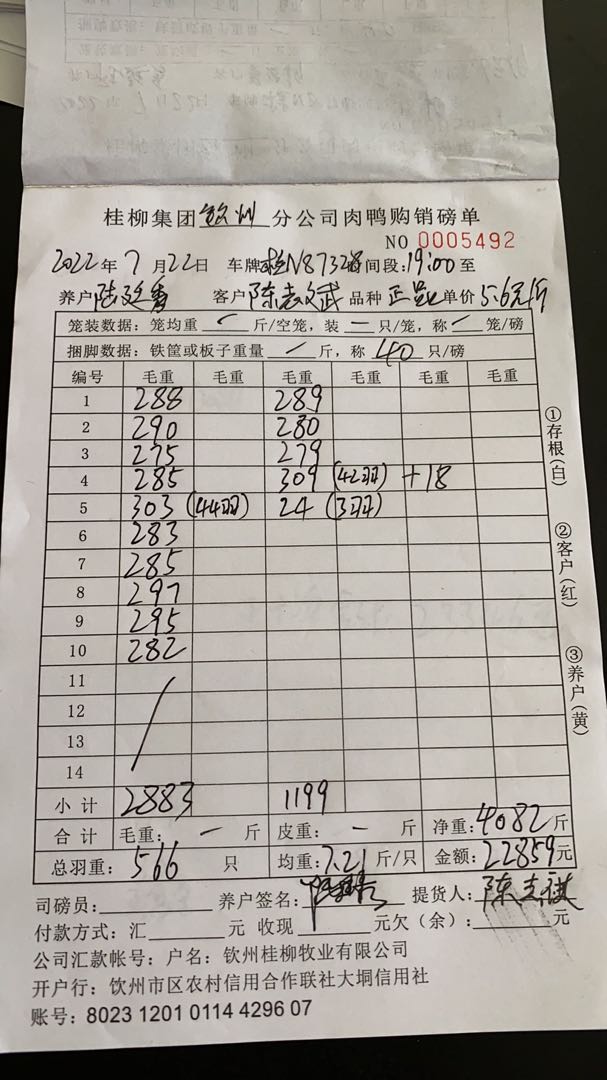 桂柳集团钦州分公司肉鸭购销磅单
NO 0005492
2022年7月22日 车牌 N8732 时间段:19:00至
养户 客户陈志武 品种 正 单价5.6元/斤
笼装数据:笼均重 / 斤/空笼,装 — 只/笼,称 / 笼/磅
捆脚数据:铁筐或板子重量 / 斤,称40只/磅
编号 毛重 毛重 毛重 毛重 毛重 毛重
1 288 289
2 290 280
3 275 279
4 285 309 (42羽) +18
5 303 (44羽) 24 (3羽)
6 283
7 285
8 297
9 295
10 282
11
12
13
14
小计 2883 1199
合计 毛重: — 斤 皮重: — 斤 净重:4082斤
总羽重:566只 均重:7.21斤/只 金额:22859元
司磅员: 养户签名: 提货人:陈志
付款方式:汇 元 收现 元欠(余): 元
公司汇款帐号:户名:钦州桂柳牧业有限公司
开户行:钦州市区农村信用合作联社大垌信用社
账号:8023 1201 0114 4296 07
①存根(白)
②客户(红)
③养户(黄)